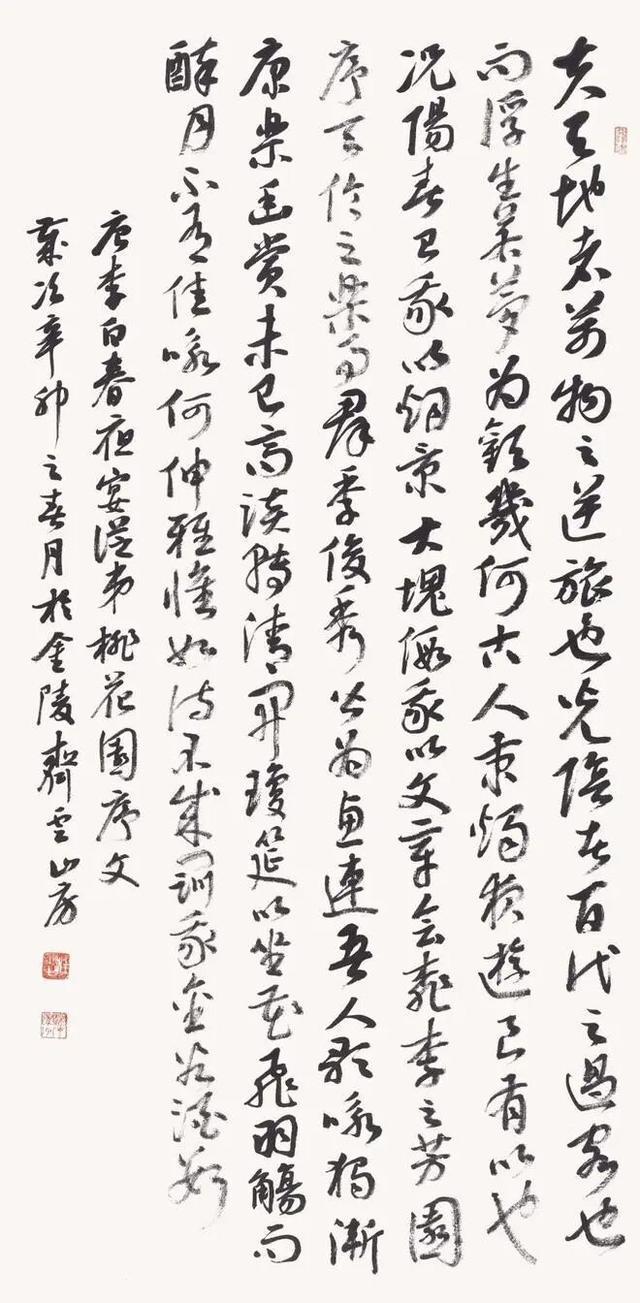 夫天地者萬物之逆旅也光陰者百代之過客也
而浮生若夢為歡幾何古人秉燭夜遊良有以也
况陽春召我以烟景大塊假我以文章會桃李之芳園
序天倫之樂事群季俊秀皆為惠連吾人歌咏獨慚
康樂幽賞未已高談轉清開瓊筵以坐花飛羽觴而
醉月不有佳咏何伸雅懷如詩不成罰金谷酒數
唐李白春夜宴從弟桃花園序文
歲次辛卯之春月於金陵齊雲山房